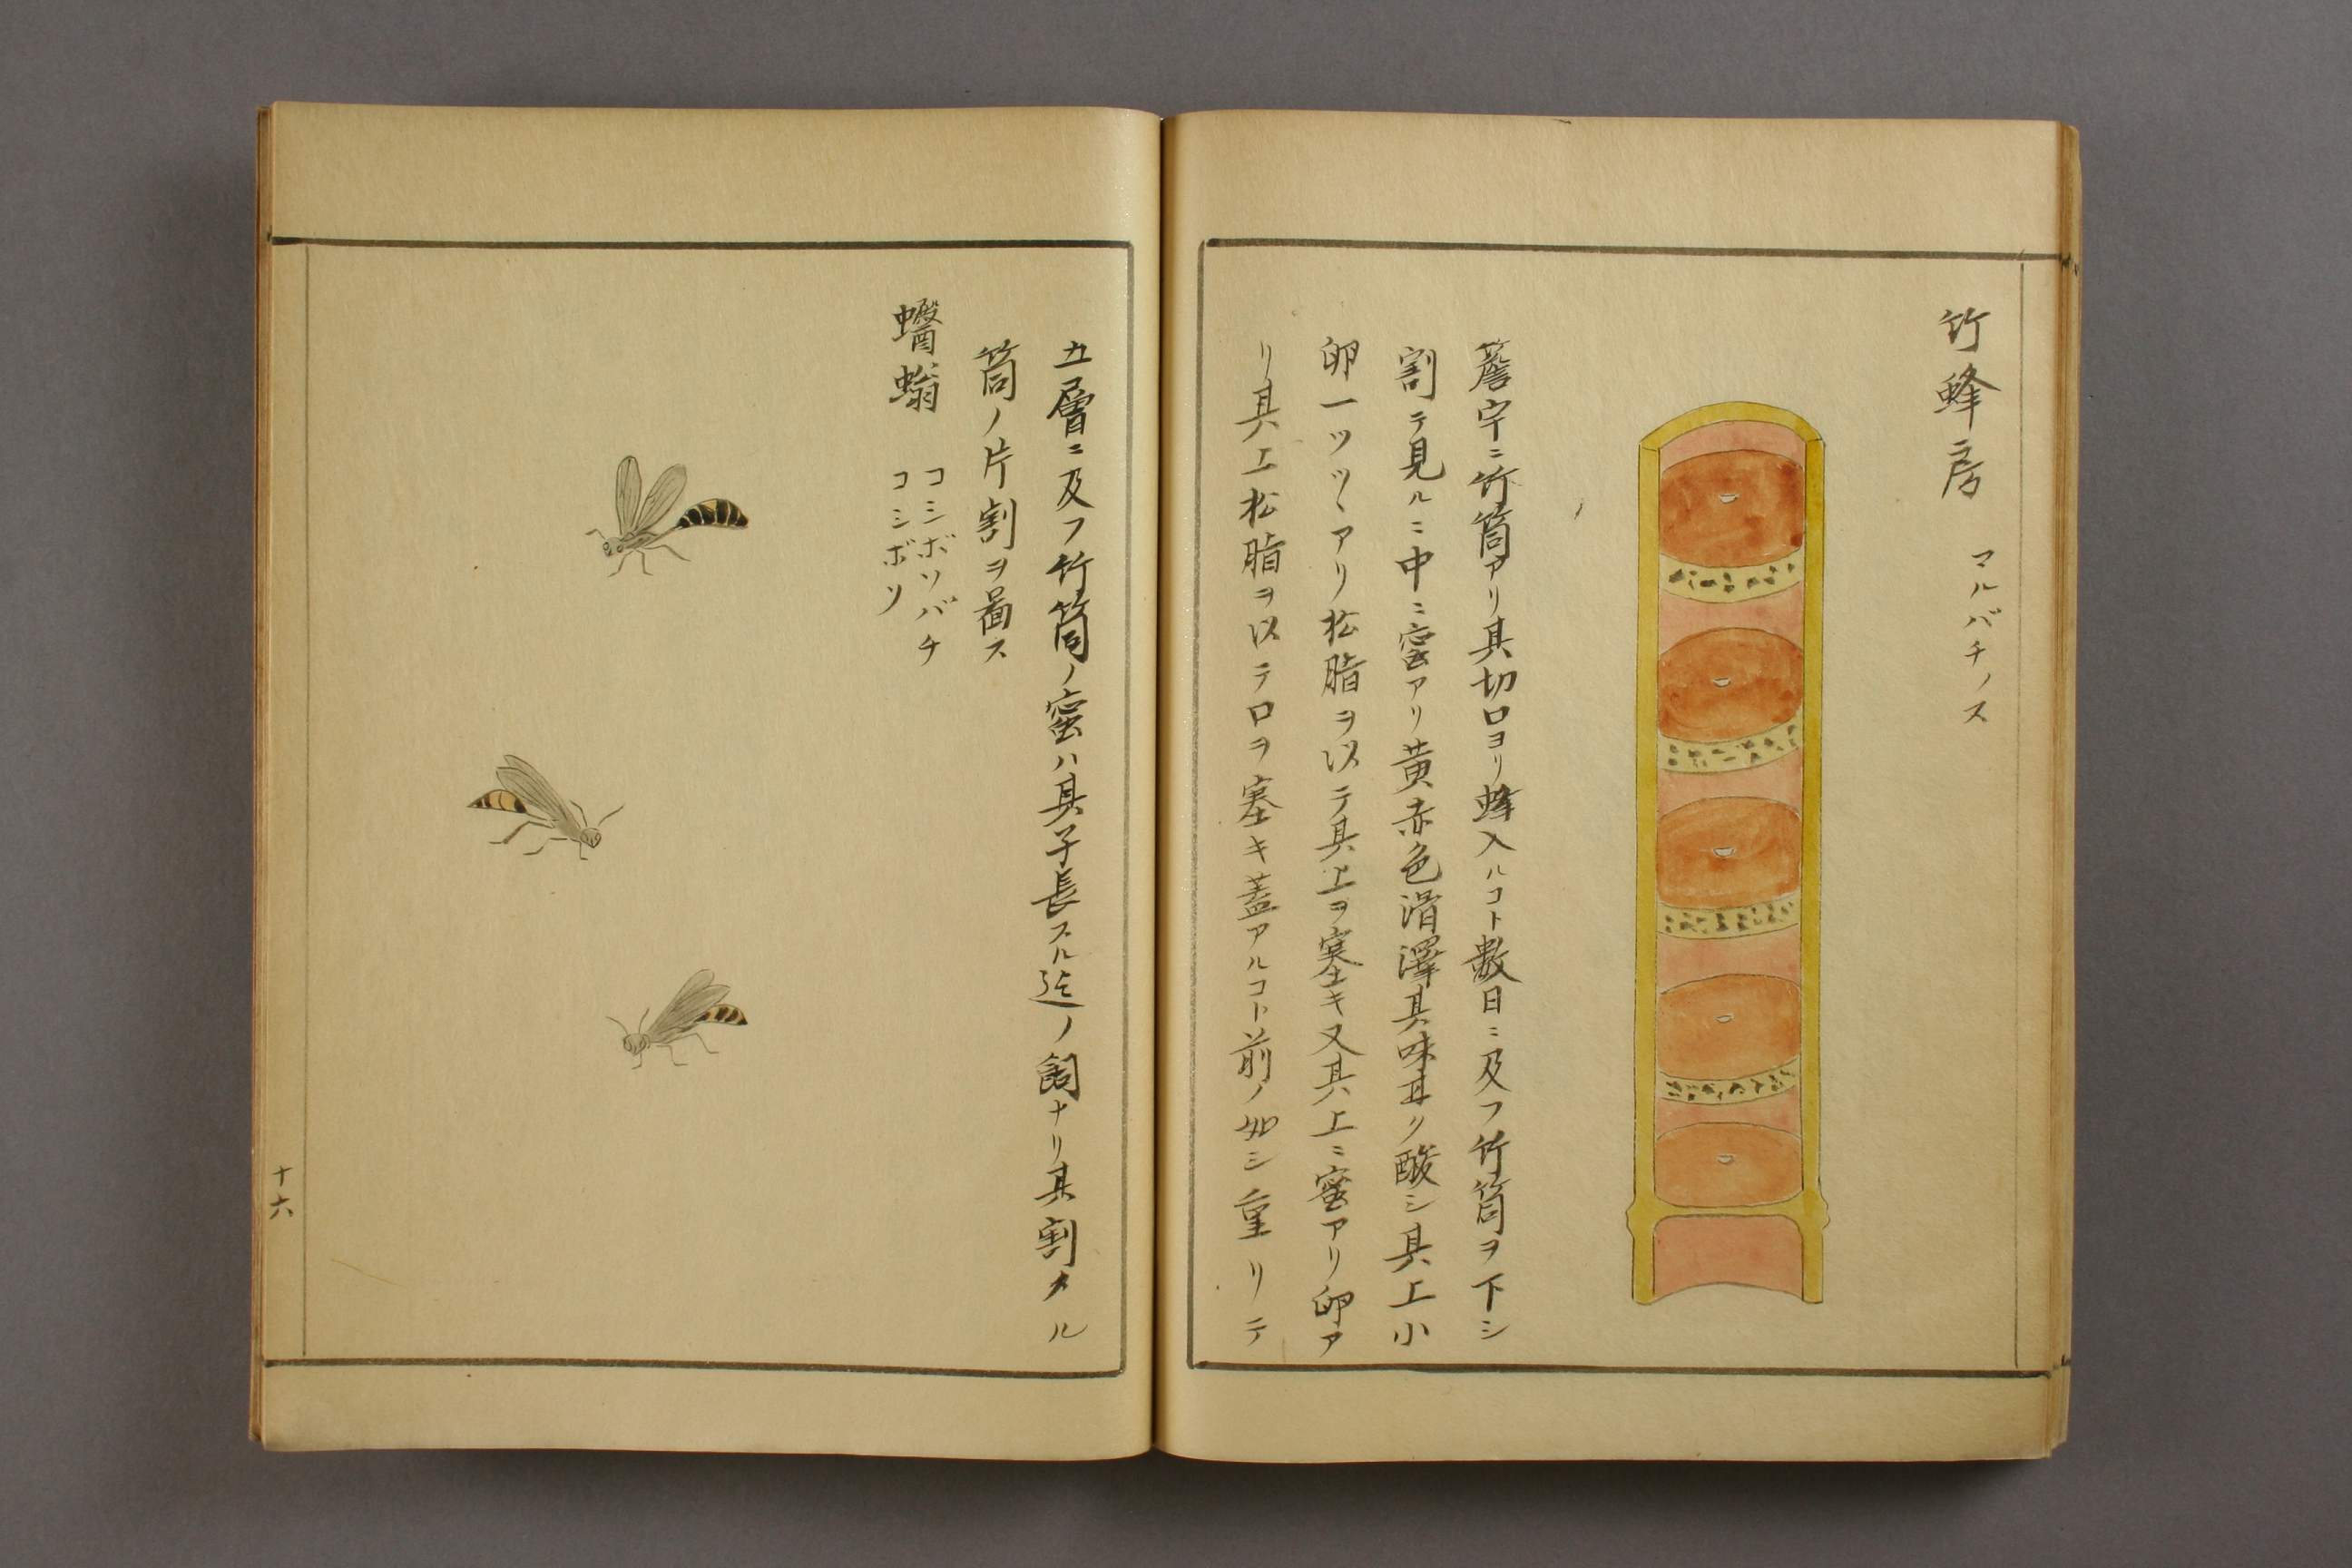 竹蜂房
マルバチノス
簷宇ニ竹筒アリ其切口ヨリ蜂入ルコト数日ニ及フ竹筒ヲ下シ
割テ見ルニ中ニ蜜アリ黄赤色滑澤其味甘ク酸シ其上小
卵一ツヅヽアリ松脂ヲ以テ其上ヲ塞キ又其上ニ蜜アリ卵ア
リ其上松脂ヲ以テ口ヲ塞キ蓋アルコト前ノ如シ重リテ
五層ニ及フ竹筒ノ蜜ハ其子長スル迄ノ飼ナリ其割タル
筒ノ片割ヲ啚ス
蠮螉
コシボソバチ
コシボソ
十六